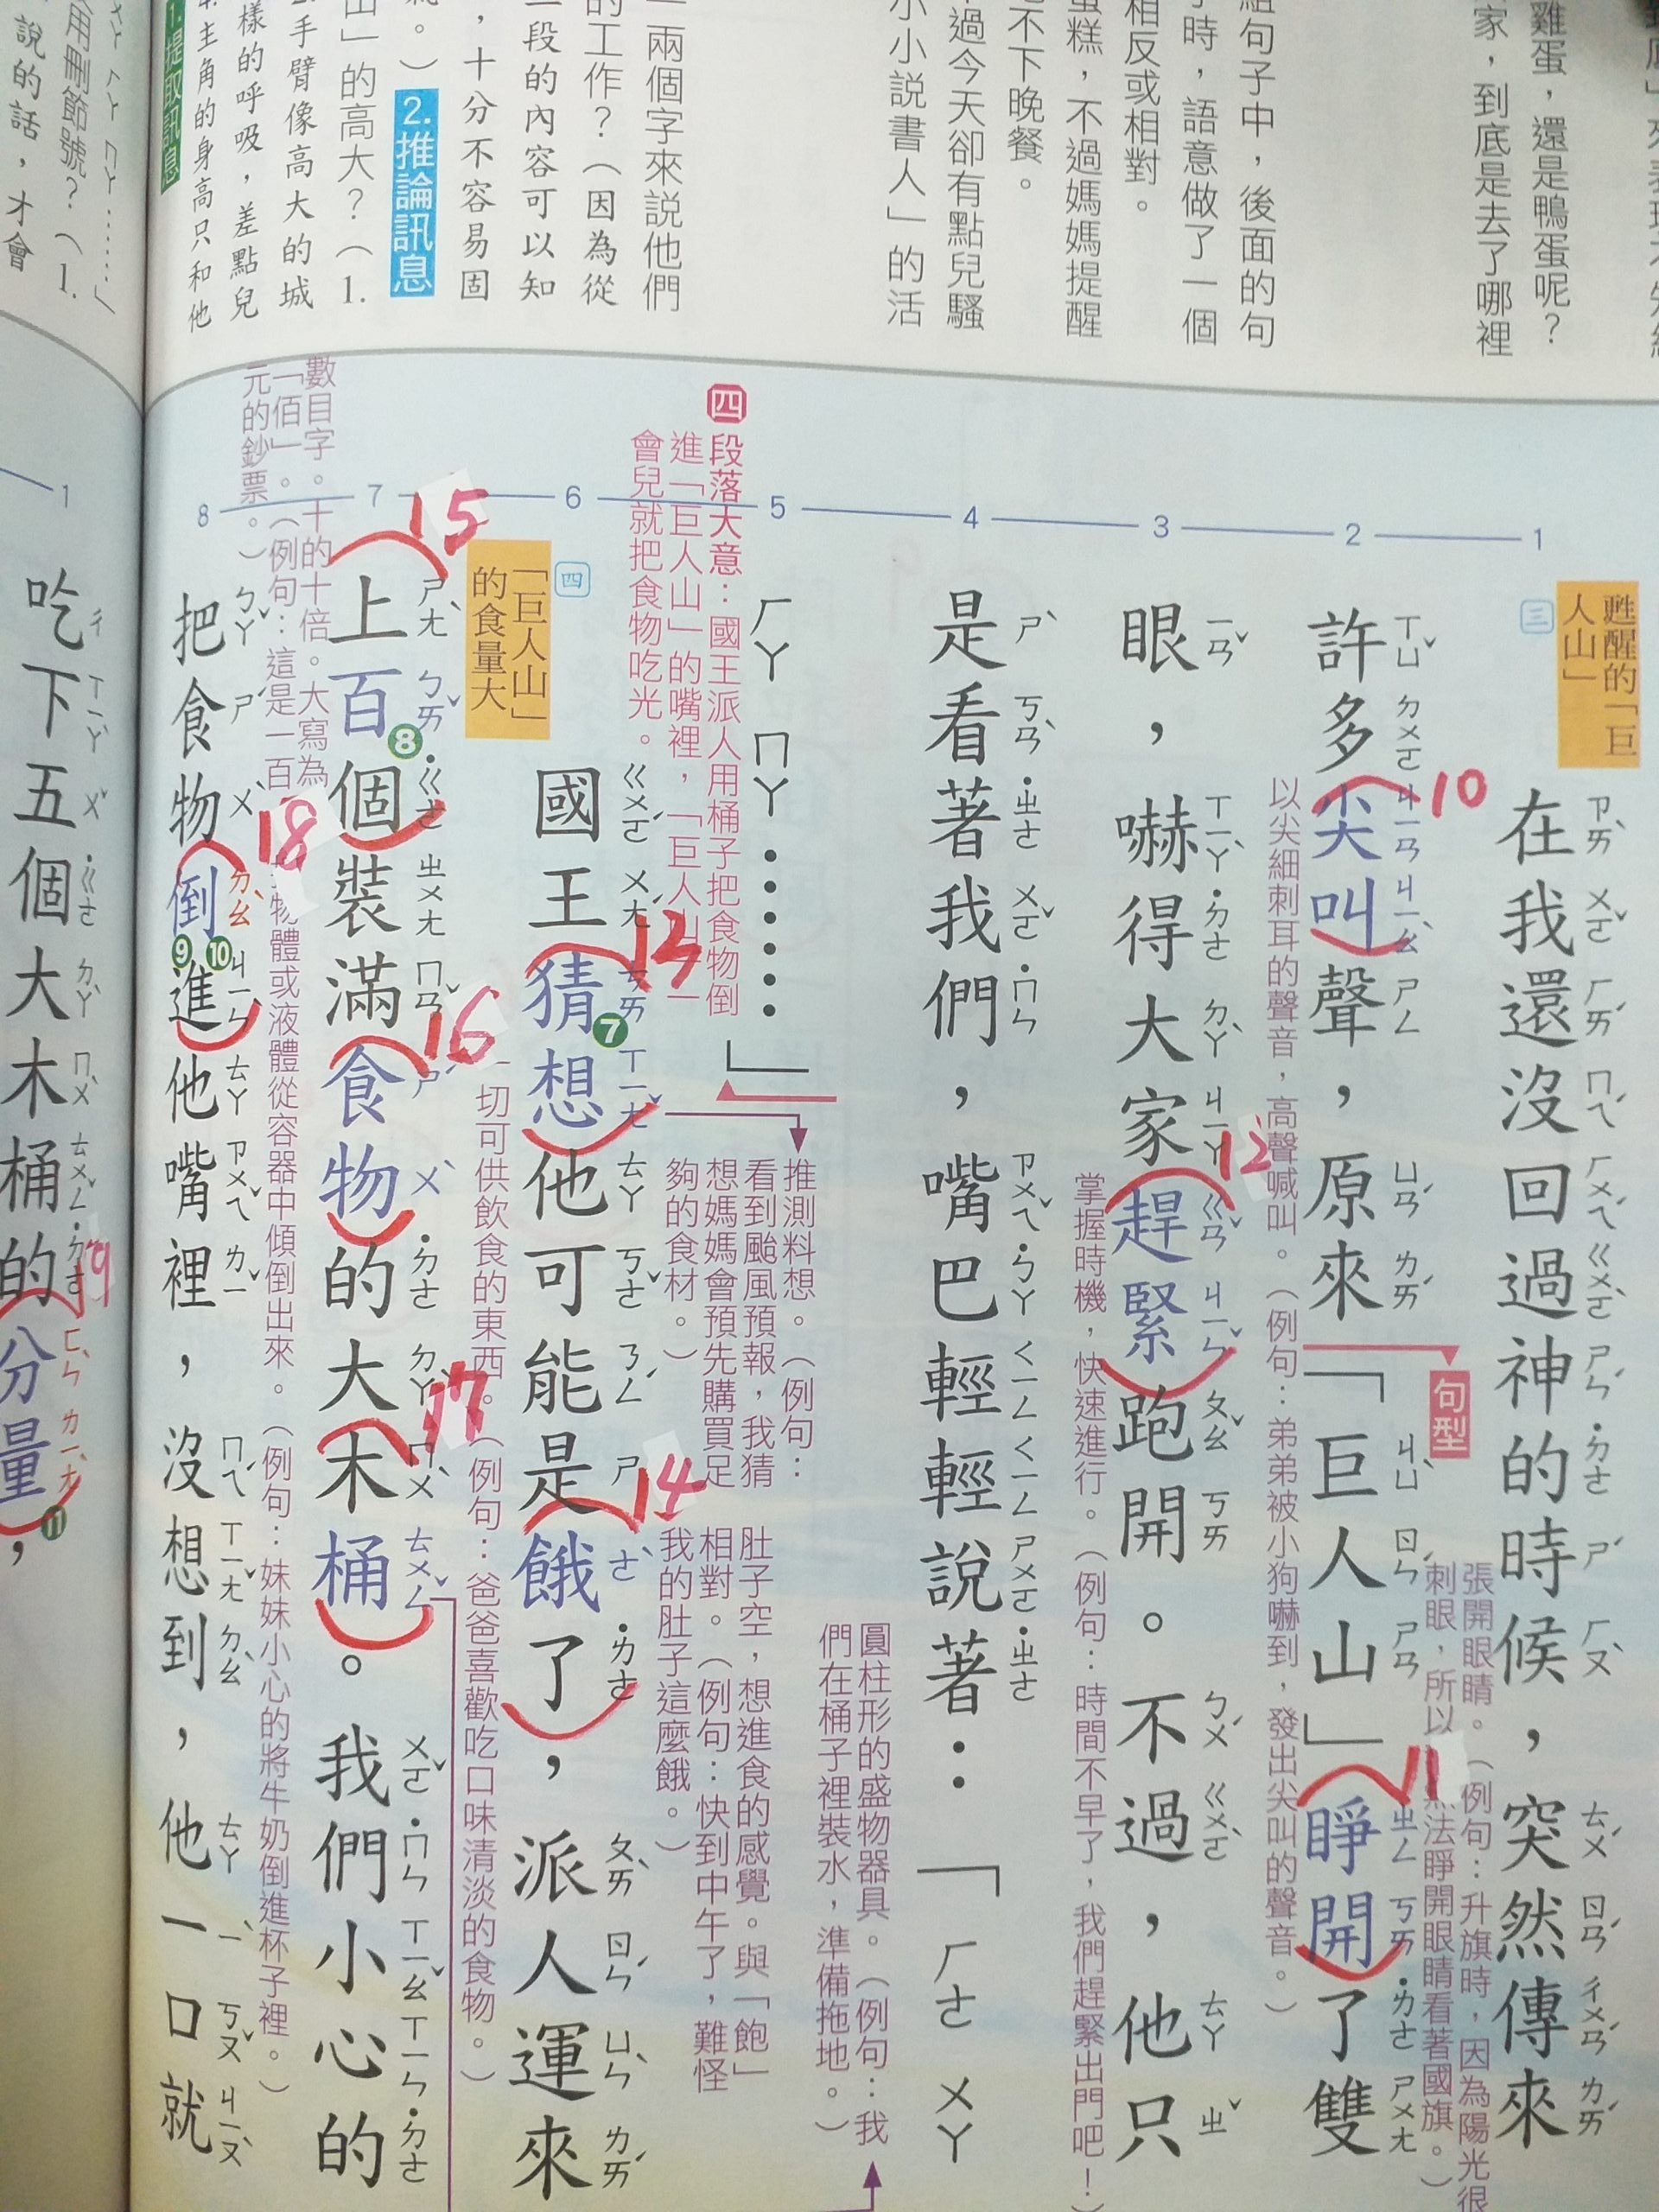 雞蛋，還是鴨蛋呢？
家，到底是去了哪裡
組句子中，後面的句
時，語意做了一個
相反或相對。
蛋糕，不過媽媽提醒
不下晚餐。
過今天卻有點兒騷
小小說書人」的活
一兩個字來說他們
的工作？（因為從
段的內容可以知
，十分不容易固
。）2.推論訊息
山」的高大？（1.
手臂像高大的城
樣的呼吸，差點兒
4.主角的身高只和他
1.提取訊息
ㄏㄚ ㄇㄚ……」
用刪節號？（1.
說的話，才會
1
2
3
4
5
6
7
8
甦醒的「巨
人山」
三
在我還沒回過神的時候，突然傳來
張開眼睛。（例句：升旗時，因為陽光很
刺眼，所以無法睜開眼睛看著國旗。）
句型
許多尖叫聲，原來「巨人山」睜開了雙
10
11
以尖細刺耳的聲音，高聲喊叫。（例句：弟弟被小狗嚇到，發出尖叫的聲音。）
眼，嚇得大家趕緊跑開。不過，他只
12
掌握時機，快速進行。（例句：時間不早了，我們趕緊出門吧！）
是看著我們，嘴巴輕輕說著：「ㄏㄜ ㄨㄚ
圓柱形的盛物器具。（例句：我
們在桶子裡裝水，準備拖地。）
ㄏㄚ ㄇㄚ……」
推測料想。（例句：
看到颱風預報，我猜
想媽媽會預先購買足
夠的食材。）
四 段落大意：國王派人用桶子把食物倒
進「巨人山」的嘴裡，「巨人山」一
會兒就把食物吃光。
肚子空，想進食的感覺。與「飽」
相對。（例句：快到中午了，難怪
我的肚子這麼餓。）
四
「巨人山」
的食量大
國王猜想他可能是餓了，派人運來
13
7
14
一切可供飲食的東西。（例句：爸爸喜歡吃口味清淡的食物。）
上百個裝滿食物的大木桶。我們小心的
15
8
16
17
數目字。十的十倍。大寫為
「佰」。（例句：這是一百
元的鈔票。）
物體或液體從容器中傾倒出來。（例句：妹妹小心的將牛奶倒進杯子裡。）
把食物倒進他嘴裡，沒想到，他一口就
18
9 10
1
吃下五個大木桶的分量，
19
11